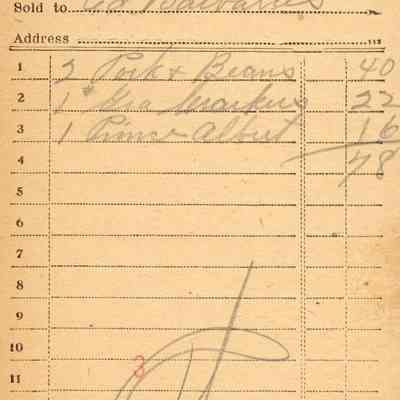 Sold to Ed
Address
1 2 Pork & Beans 40
2 1# Gra Crackers 22
3 1 Prince Albert 16
4 78
5
6
7
8
9
10
3
11